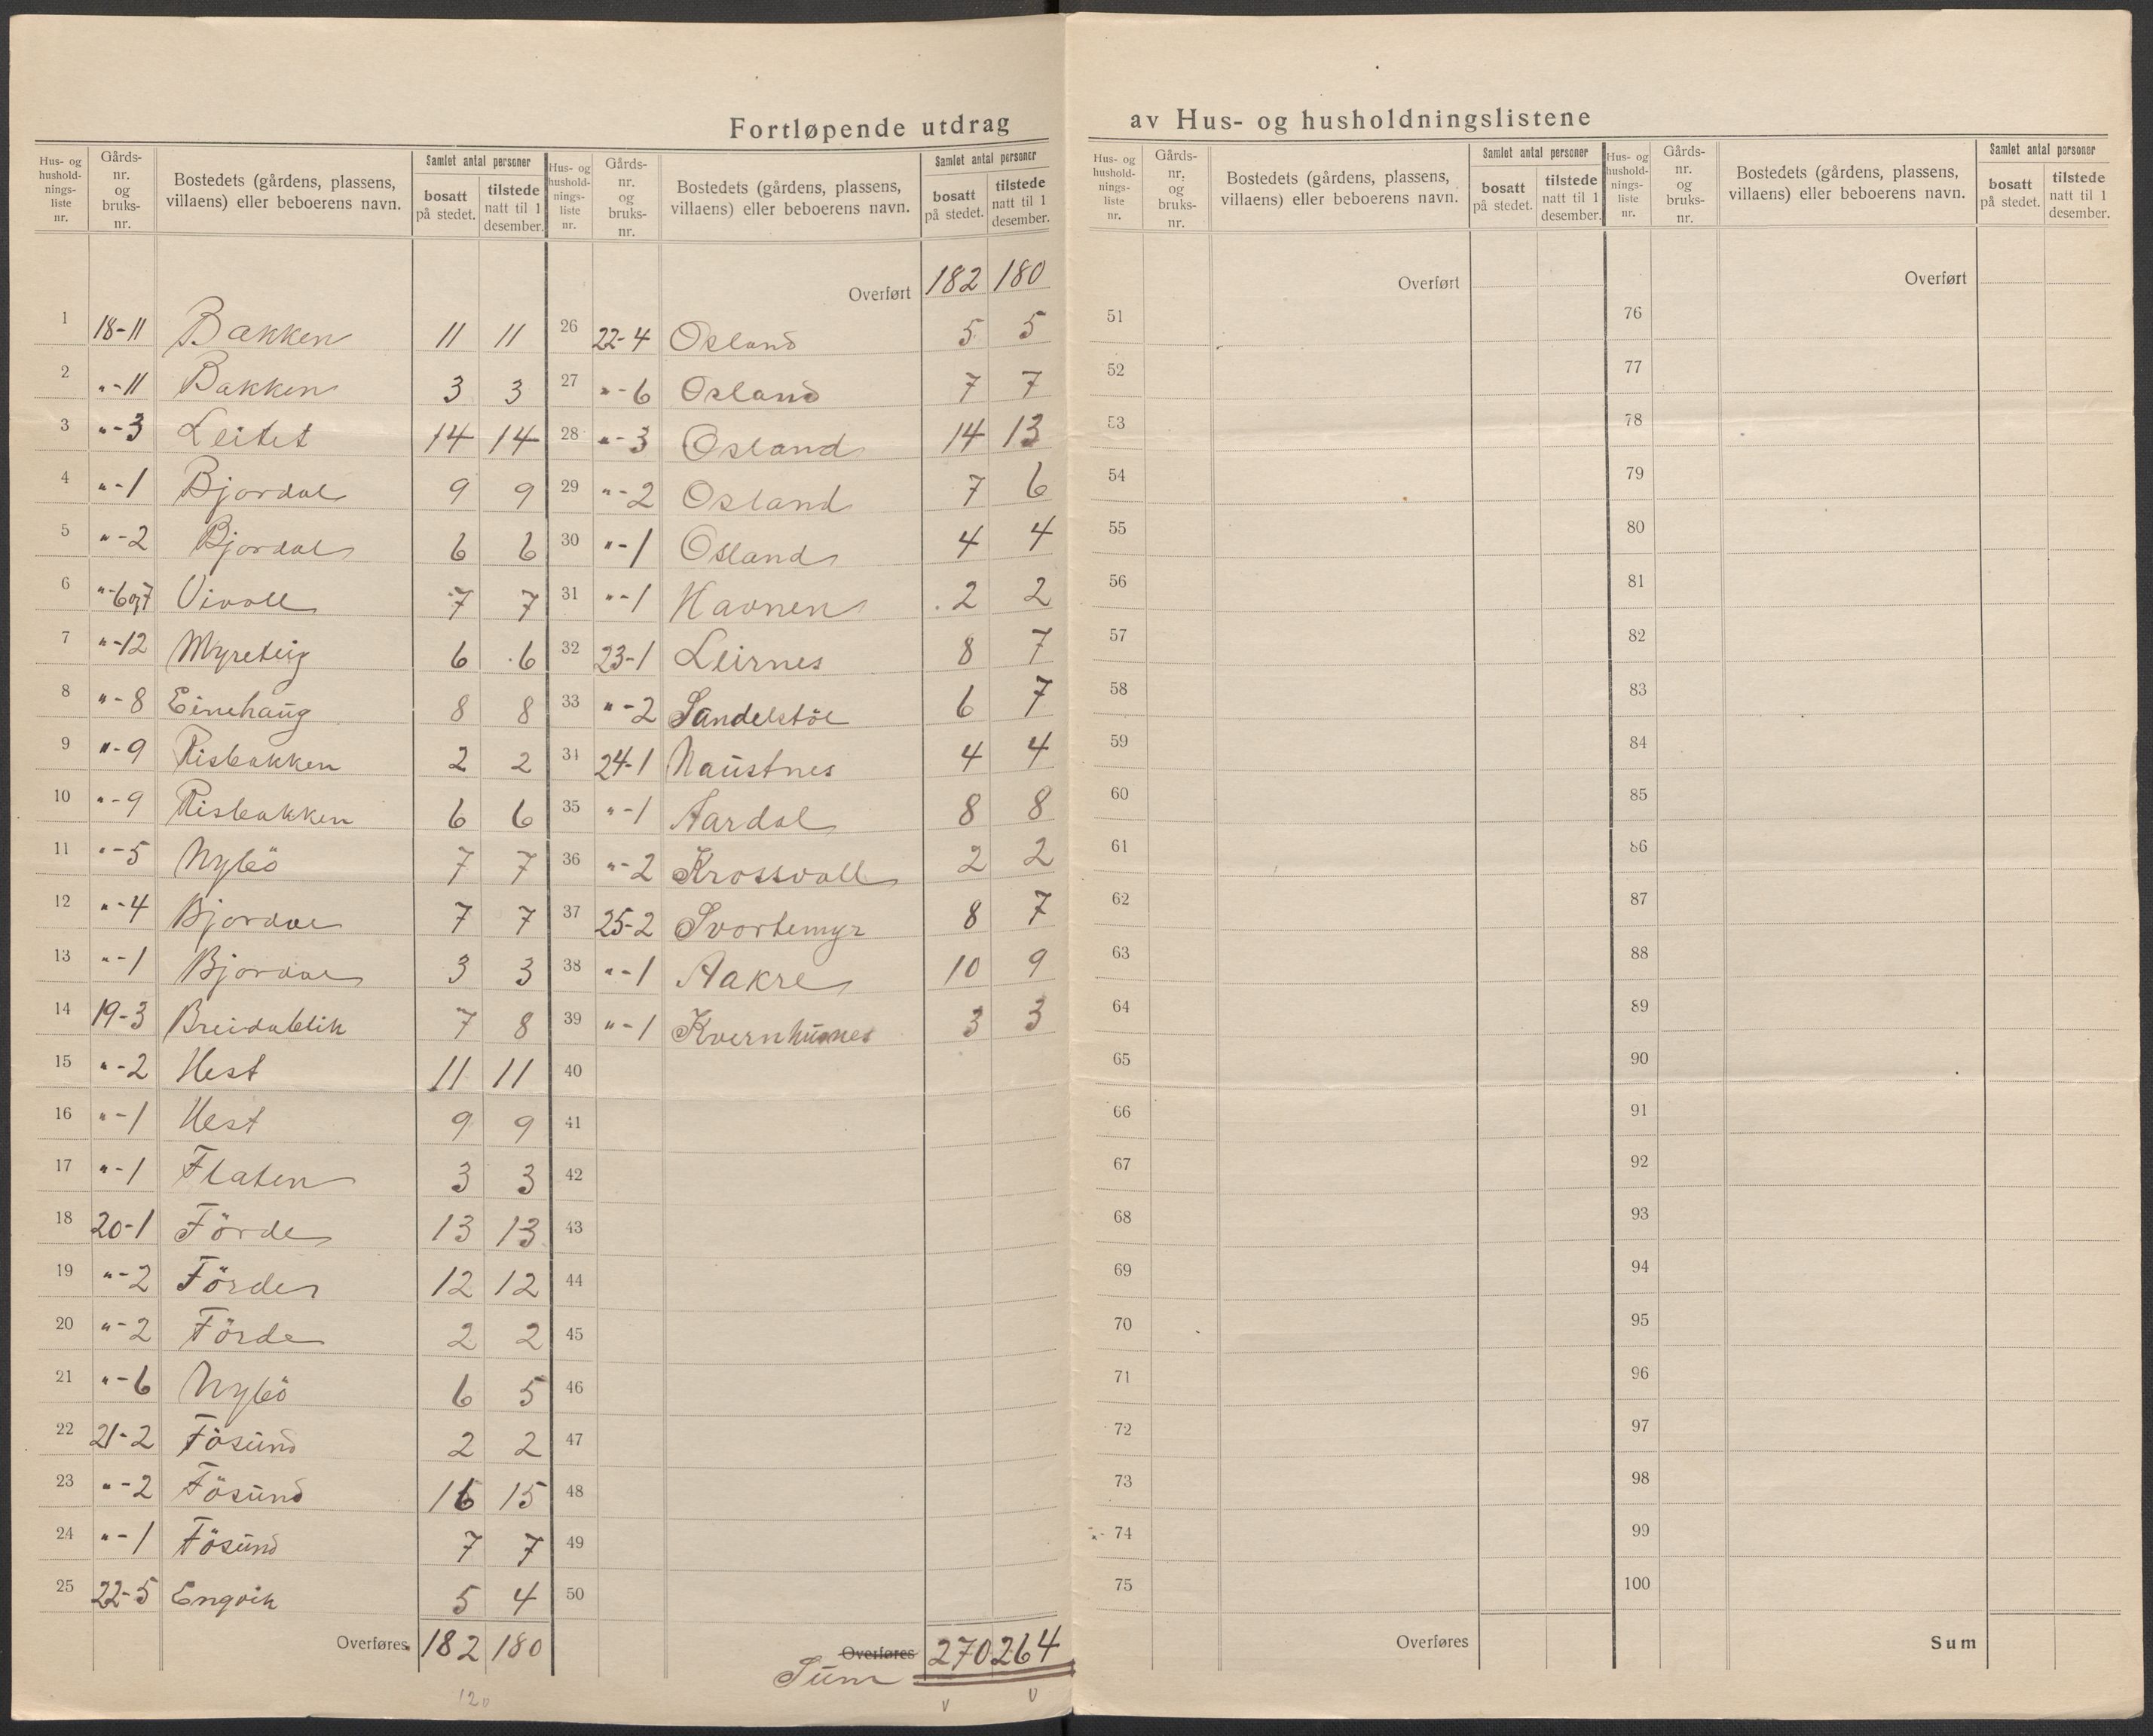 Fortløpende utdrag av Hus- og husholdningslistene
Hus- og husholdnings-liste nr. | Gårds-nr. og bruks-nr. | Bostedets (gårdens, plassens, villaens) eller beboerens navn. | Samlet antal personer | bosatt på stedet. | tilstede natt til 1 desember.
1 18-11 Bakken 11 11
2 "-11 Bakken 3 3
3 "-3 Leitet 14 14
4 "-1 Bjordal 9 9
5 "-2 Bjordal 6 6
6 "-6og7 Vivoll 7 7
7 "-12 Myreteig 6 6
8 "-8 Einehaug 8 8
9 "-9 Risbakken 2 2
10 "-9 Risbakken 6 6
11 "-5 Nybö 7 7
12 "-4 Bjordal 7 7
13 "-1 Bjordal 3 3
14 19-3 Breidablik 7 8
15 "-2 Hest 11 11
16 "-1 Hest 9 9
17 "-1 Flaten 3 3
18 20-1 Förde 13 13
19 "-2 Förde 12 12
20 "-2 Förde 2 2
21 "-6 Nybö 6 5
22 21-2 Fösund 2 2
23 "-2 Fösund 16 15
24 "-1 Fösund 7 7
25 22-5 Engvik 5 4
Overføres 182 180
120
Hus- og husholdnings-liste nr. | Gårds-nr. og bruks-nr. | Bostedets (gårdens, plassens, villaens) eller beboerens navn. | Samlet antal personer | bosatt på stedet. | tilstede natt til 1 desember.
Overført 182 180
26 22-4 Osland 5 5
27 "-6 Osland 7 7
28 "-3 Osland 14 13
29 "-2 Osland 7 6
30 "-1 Osland 4 4
31 "-1 Havnen 2 2
32 23-1 Leirnes 8 7
33 "-2 Sandelstöl 6 7
34 24-1 Naustnes 4 4
35 "-1 Aardal 8 8
36 "-2 Krossvoll 2 2
37 25-2 Svortemyr 8 7
38 "-1 Aakre 10 9
39 "-1 Kvernhusnes 3 3
40
41
42
43
44
45
46
47
48
49
50
Overføres 270 264
Sum
Hus- og husholdnings-liste nr. | Gårds-nr. og bruks-nr. | Bostedets (gårdens, plassens, villaens) eller beboerens navn. | Samlet antal personer | bosatt på stedet. | tilstede natt til 1 desember.
Overført
51
52
53
54
55
56
57
58
59
60
61
62
63
64
65
66
67
68
69
70
71
72
73
74
75
Overføres
Hus- og husholdnings-liste nr. | Gårds-nr. og bruks-nr. | Bostedets (gårdens, plassens, villaens) eller beboerens navn. | Samlet antal personer | bosatt på stedet. | tilstede natt til 1 desember.
Overført
76
77
78
79
80
81
82
83
84
85
86
87
88
89
90
91
92
93
94
95
96
97
98
99
100
Sum